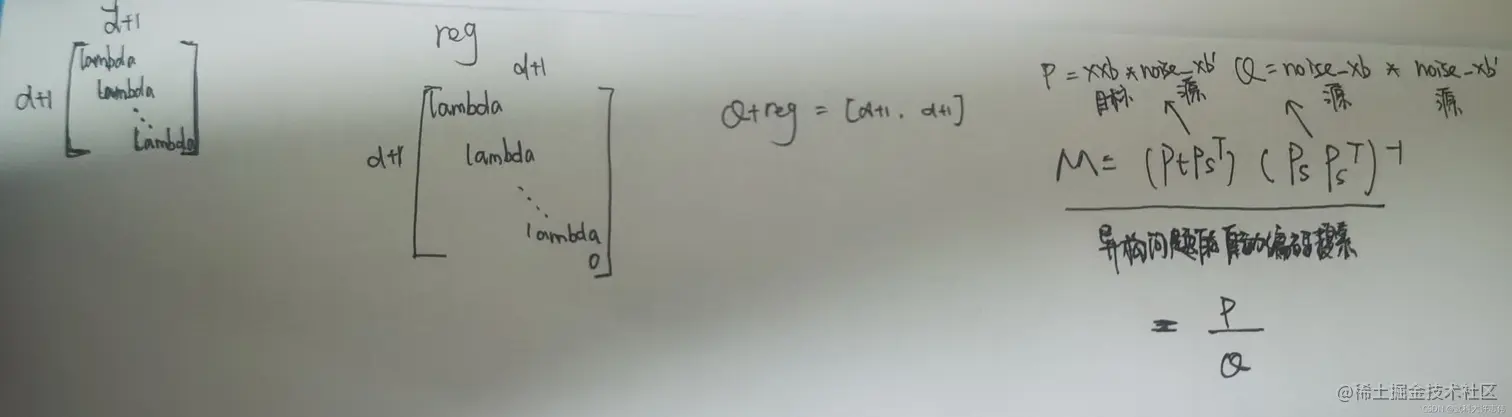 d+1
d+1
lambda
lambda
⋱
lambda
reg
d+1
d+1
lambda
lambda
⋱
lambda
0
Q+reg = [d+1, d+1]
P = xxb * noise_xb' Q = noise_xb * noise_xb'
目标 源 源 源
M = (PtPs^T) (Ps Ps^T)^-1
异构问题的自动编码搜索
= P
Q
@稀土掘金技术社区